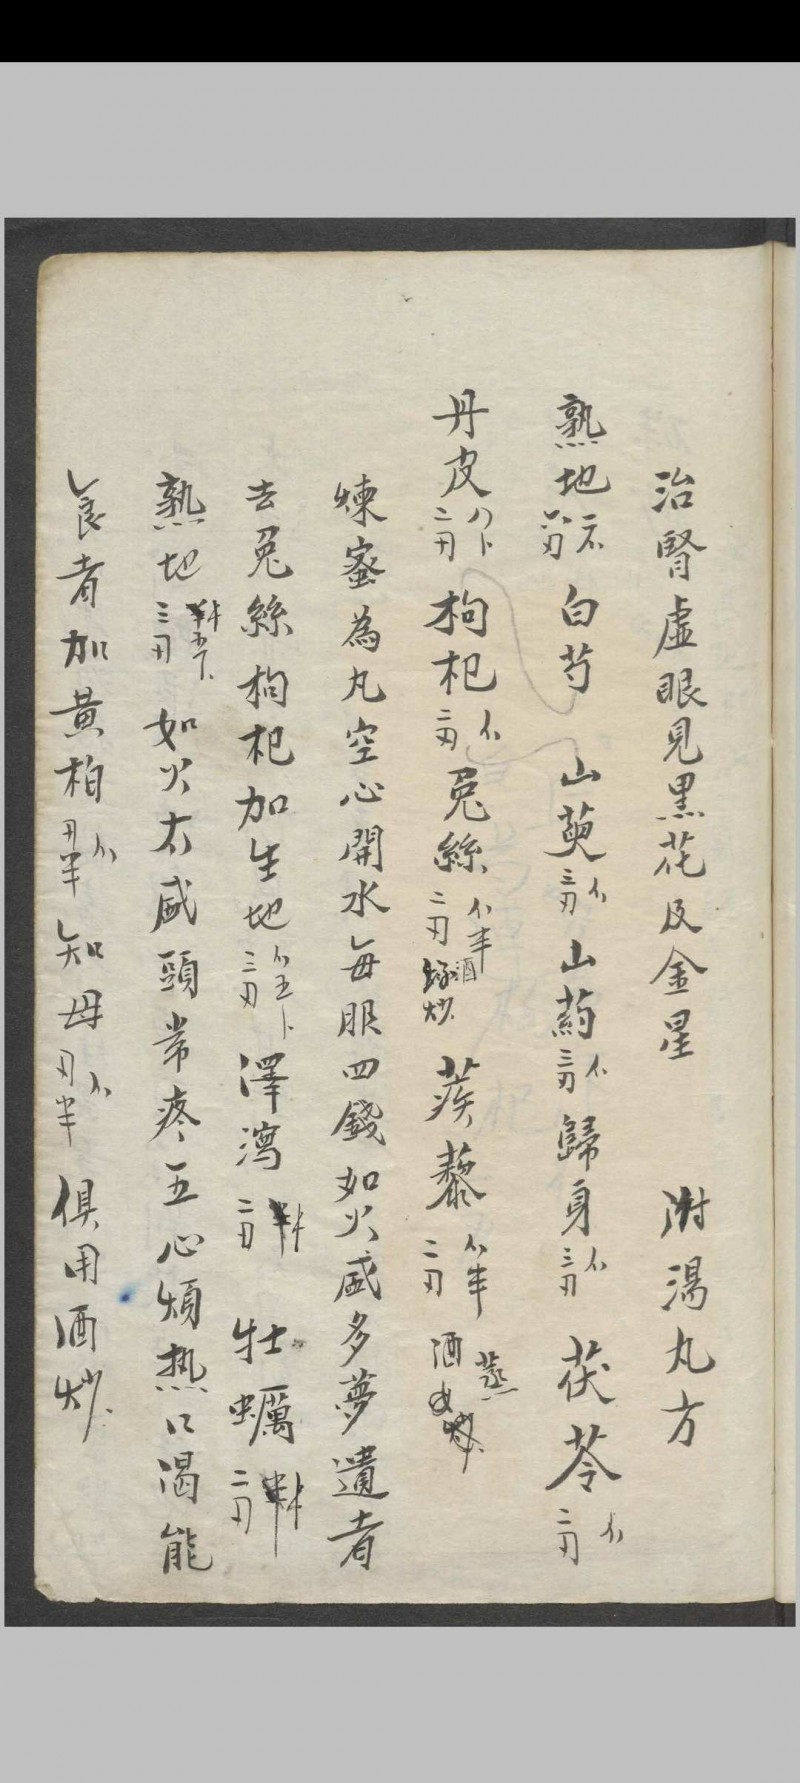 治腎虛眼見黑花及金星 附湯丸方
熟地 白芍 山萸 三刃 山葯 三刃 歸身 三刃 茯苓 二刃
丹皮 二刃 枸杞 二刃 兎絲 二刃 酒 炒 蒺藜 二刃 酒 蒸
煉蜜為丸空心開水每服四錢如火盛多夢遺者
去兎絲枸杞加生地 三刃 澤瀉 二刃 牡蠣 二刃
熟地 三刃 如火太盛頭常疼五心煩热口渴能
食者加黃柏 刃半 知母 刃半 俱用酒炒